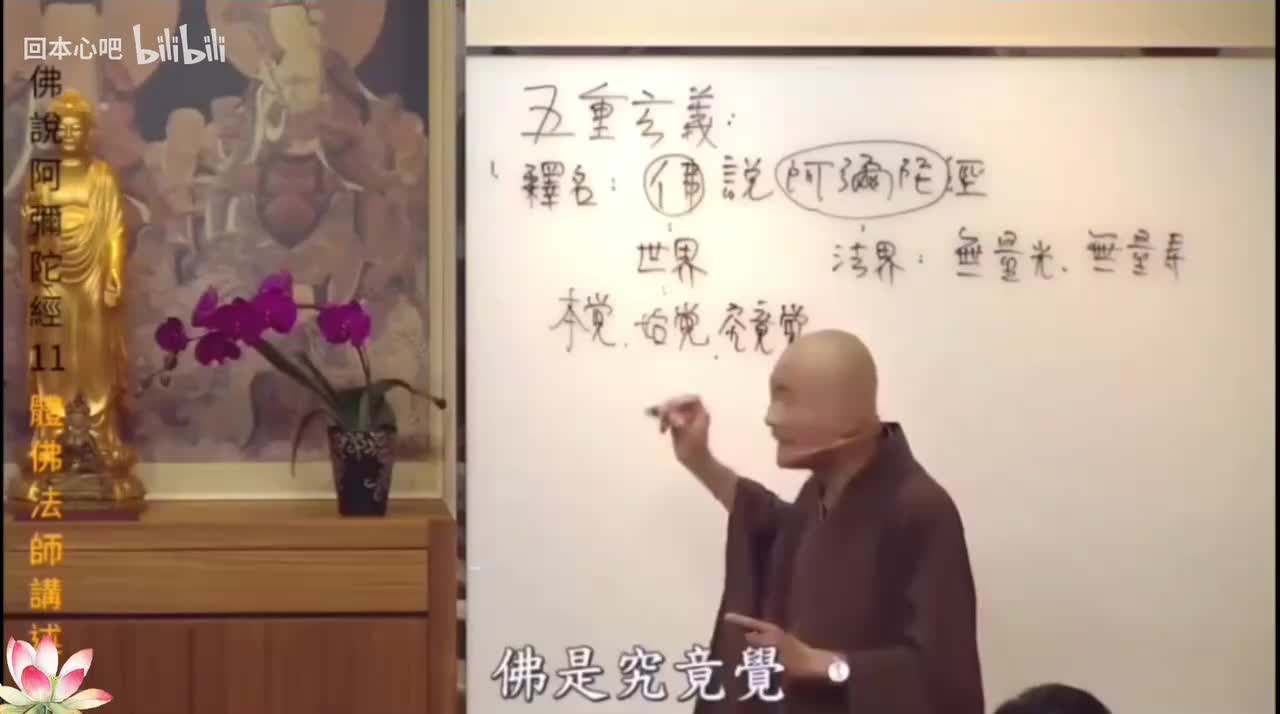 回本心吧 bilibili
佛說阿彌陀經11 體佛法師講述
五重玄義：
1 釋名：佛說阿彌陀經
世界 法界：無量光、無量寿
本覚、始覚、究竟覚
佛是究竟覺